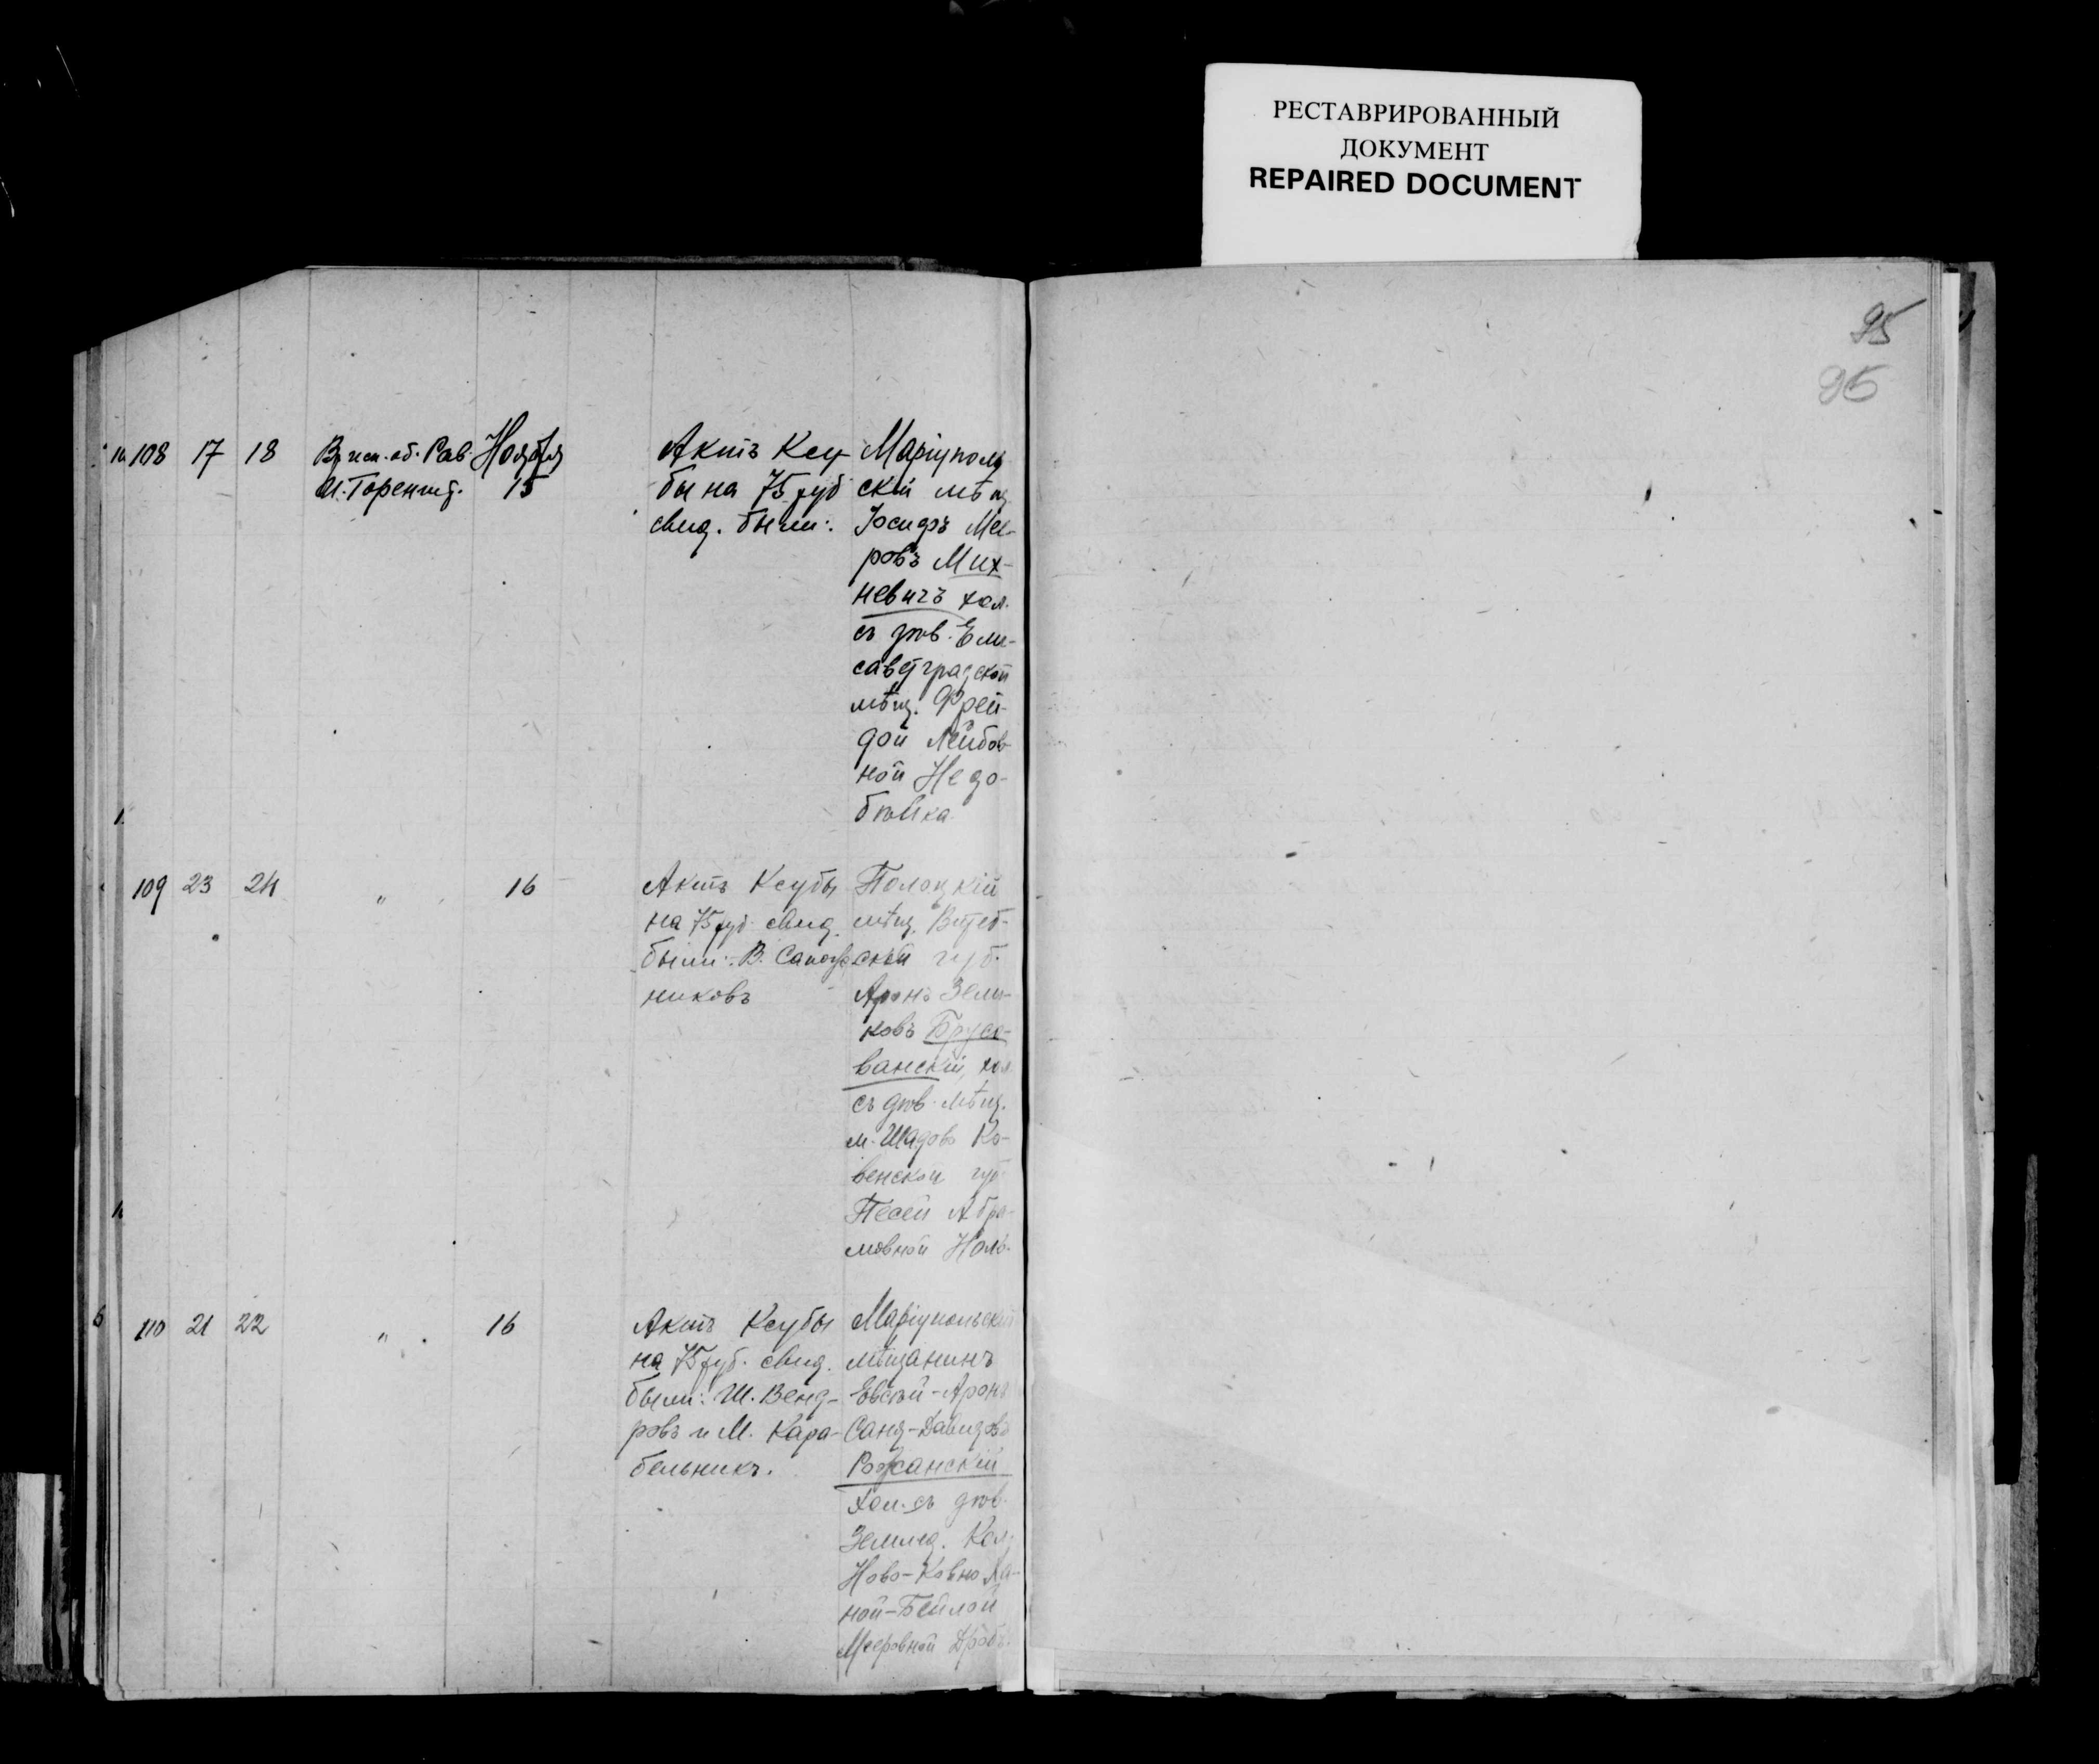 РЕСТАВРИРОВАННЫЙ
ДОКУМЕНТ
REPAIRED DOCUMENT
95
108 17 18
Вр исп. об. Рав.
Ноября
15
Актъ Ксу-
бы на 75 руб
свид. были:
Маріуполь
скій мѣщ
Іосифъ Мее-
ровъ Мих-
невичъ хол.
съ дѣв. Ели-
саветградской
мѣщ. Фрей-
дой Лейбов-
ной Недо-
бѣйка
109 23 24 " 16
Актъ Ксубы
на 75 руб. свид.
были: В. Сапож
никовъ
Полоцкій
мѣщ. Витеб-
ской губ.
Аронъ Зели-
ковъ
ванскій, хол
съ дѣв. мѣщ.
м. Шадовъ Ко-
венской губ
Песей Абра-
мовной
110 21 22 " 16
Актъ Ксубы
на 75 руб. свид.
были: Ш. Венд-
ровъ и М. Кара-
бельникъ.
Маріупольскій
мѣщанинъ
Евсѣй-Аронъ
Давидовъ
Рожанскій
хол. съ дѣв.
Землед. Кол
Ново-Ковно Ха-
ной-Бейлой
Мееровной